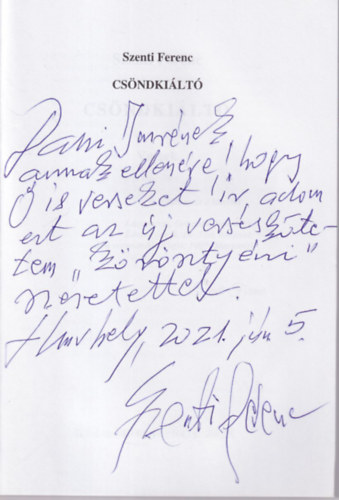 Szenti Ferenc
CSÖNDKIÁLTÓ
Imrének
annak ellenére, hogy
ő is verseket ír, adom
ezt az új versesköte-
tem
szeretettel.
Hmvhely, 2021. jún 5.
Szenti Ferenc